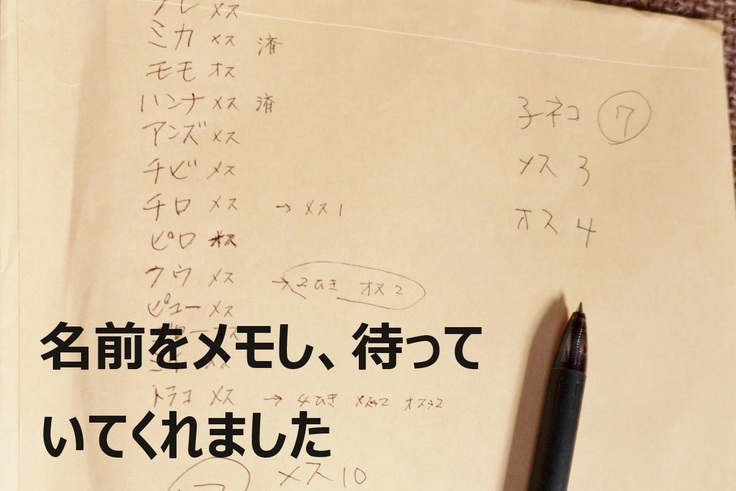 ミカ メス 済
モモ オス
ハンナ メス 済
アンズ メス
チビ メス
チロ メス → メス1
ピロ オス
クウ メス → 2ひき オス2
ピュー メス
トラコ メス → 4ひき メス2 オス2
メス10
子ネコ 7
メス 3
オス 4
名前をメモし、待って
いてくれました